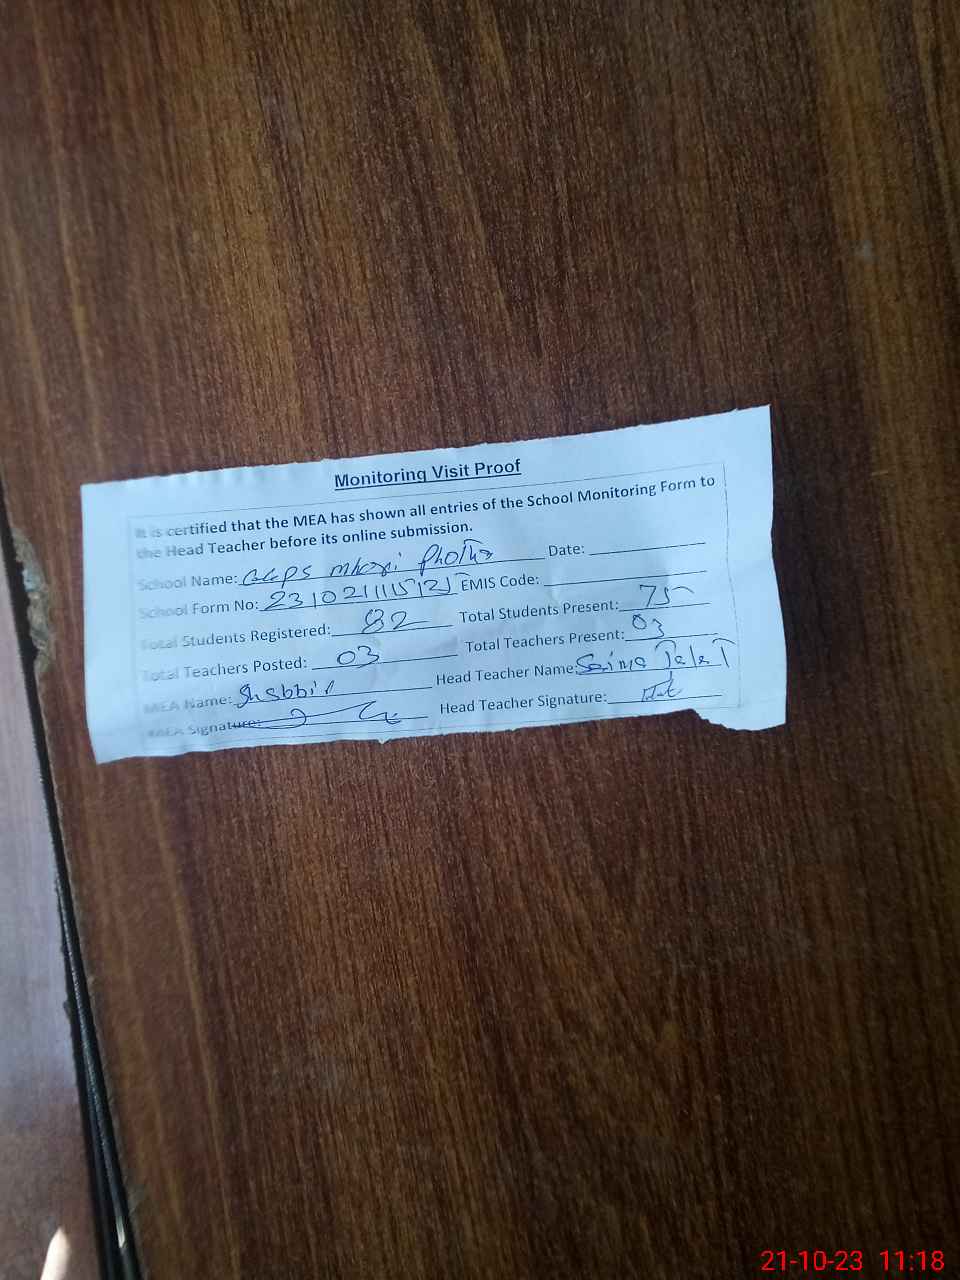 Monitoring Visit Proof
It is certified that the MEA has shown all entries of the School Monitoring Form to
the Head Teacher before its online submission.
School Name: Date:
School Form No: EMIS Code:
Total Students Registered: 82 Total Students Present: 75
Total Teachers Posted: 03 Total Teachers Present: 03
MEA Name: Shabbir Head Teacher Name: Saima Talat
MEA Signature: Head Teacher Signature:
21-10-23 11:18